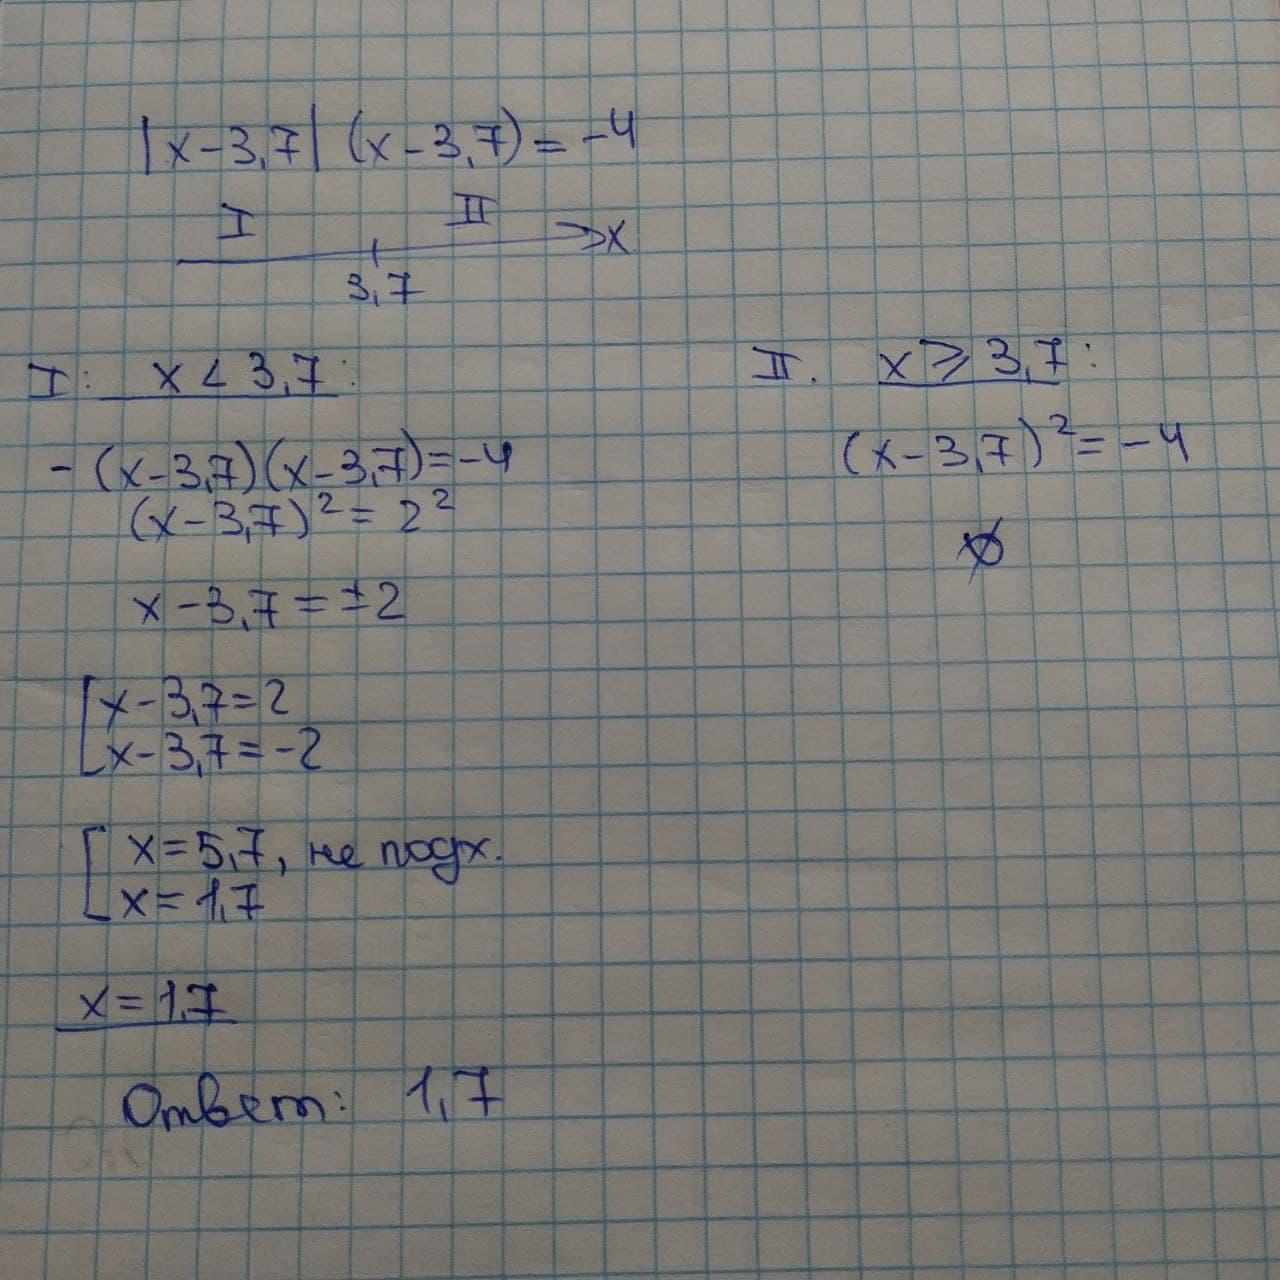 |x-3,7| (x-3,7) = -4
I II
x
3,7
I: x < 3,7:
-(x-3,7)(x-3,7)=-4
(x-3,7)² = 2²
x-3,7 = ±2
[x-3,7=2
x-3,7=-2
[x=5,7, не подх.
x=1,7
x=1,7
Ответ: 1,7
II. x ⩾ 3,7:
(x-3,7)² = -4
∅